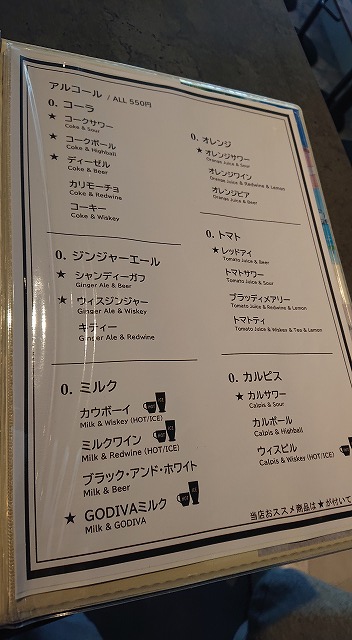 アルコール / ALL 550円
0. コーラ
★ コークサワー
Coke & Sour
★ コークボール
Coke & Highball
★ ディーゼル
Coke & Beer
カリモーチョ
Coke & Redwine
コーキー
Coke & Wiskey
0. オレンジ
★ オレンジサワー
Orange Juice & Sour
オレンジワイン
Orange Juice & Redwine & Lemon
オレンジビア
Orange Juice & Beer
0. ジンジャーエール
★ シャンディーガフ
Ginger Ale & Beer
★ ウィスジンジャー
Ginger Ale & Wiskey
キティー
Ginger Ale & Redwine
0. トマト
★ レッドアイ
Tomato Juice & Beer
トマトサワー
Tomato Juice & Sour
ブラッティメアリー
Tomato Juice & Redwine & Lemon
トマトティ
Tomato Juice & Wiskey & Tea & Lemon
0. ミルク
カウボーイ HOT ICE
Milk & Wiskey (HOT/ICE)
ミルクワイン HOT ICE
Milk & Redwine (HOT/ICE)
ブラック・アンド・ホワイト
Milk & Beer
★ GODIVAミルク HOT ICE
Milk & GODIVA
0. カルピス
★ カルサワー
Calpis & Sour
カルボール
Calpis & Highball
ウィスピル HOT
Calpis & Wiskey (HOT/ICE)
当店おススメ商品は★が付いて